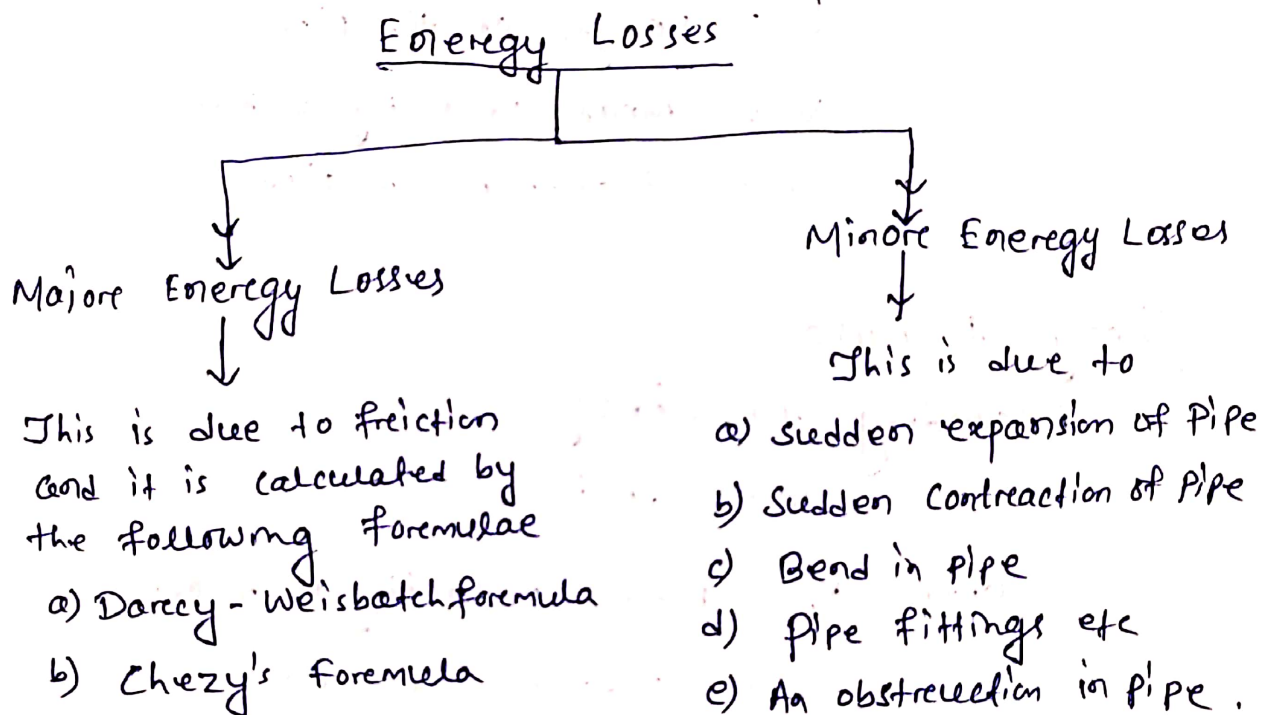 Energy Losses
Major Energy Losses
This is due to friction
and it is calculated by
the following formulae
a) Darcy - Weisbatch formula
b) Chezy's formula
Minor Energy Losses
This is due to
a) Sudden expansion of Pipe
b) Sudden Contraction of Pipe
c) Bend in pipe
d) Pipe fittings etc
e) An obstruction in pipe.